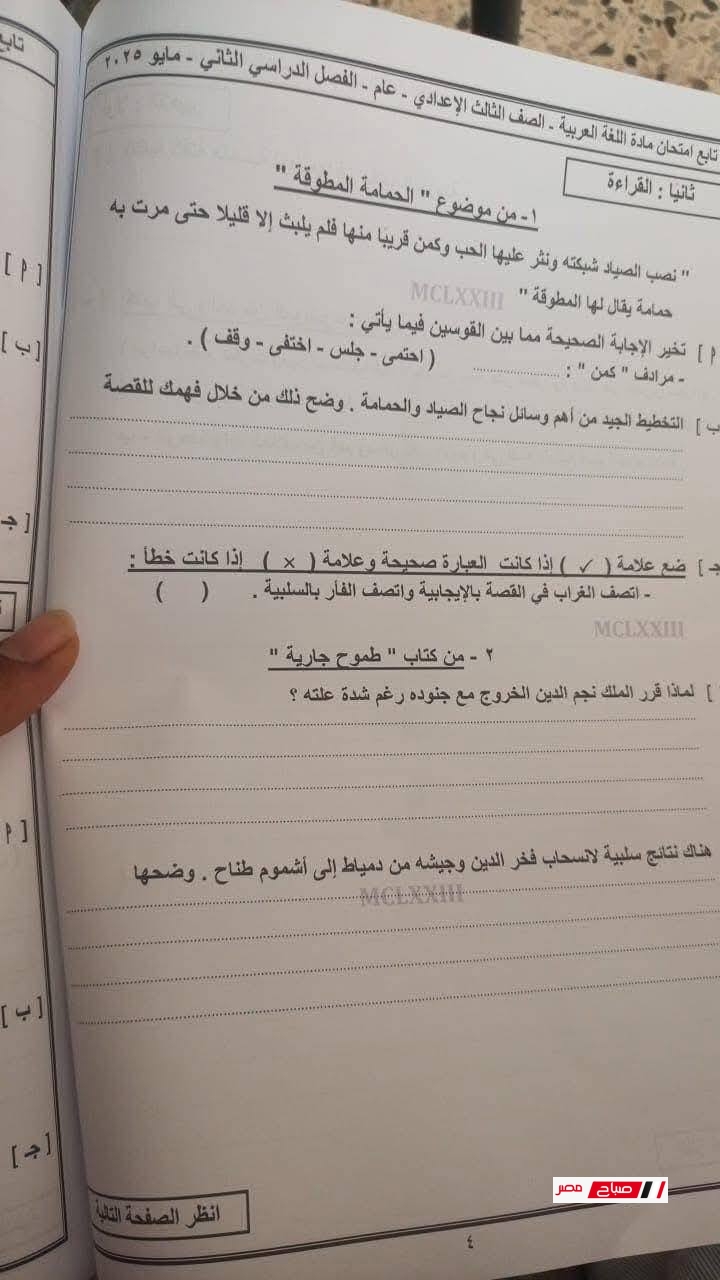 تابع امتحان مادة اللغة العربية - الصف الثالث الإعدادي - عام - الفصل الدراسي الثاني - مايو ٢٠٢٥
ثانيا : القراءة
١- من موضوع " الحمامة المطوقة "
" نصب الصياد شبكته ونثر عليها الحب وكمن قريبا منها فلم يلبث إلا قليلا حتى مرت به
حمامة يقال لها المطوقة "
MCLXXIII
أ ] تخير الإجابة الصحيحة مما بين القوسين فيما يأتي :
- مرادف " كمن " : .................... ( احتمى - جلس - اختفى - وقف ) .
ب ] التخطيط الجيد من أهم وسائل نجاح الصياد والحمامة . وضح ذلك من خلال فهمك للقصة
جـ ] ضع علامة ( ✓ ) إذا كانت العبارة صحيحة وعلامة ( × ) إذا كانت خطأ :
- اتصف الغراب في القصة بالإيجابية واتصف الفأر بالسلبية . ( )
MCLXXIII
٢ - من كتاب " طموح جارية "
] لماذا قرر الملك نجم الدين الخروج مع جنوده رغم شدة علته ؟
هناك نتائج سلبية لانسحاب فخر الدين وجيشه من دمياط إلى أشموم طناح . وضحها
MCLXXIII
انظر الصفحة التالية
٤
صباح مصر
تابع
[ أ ]
[ ب ]
[ جـ
[ أ
[ ب ]
[ جـ ]